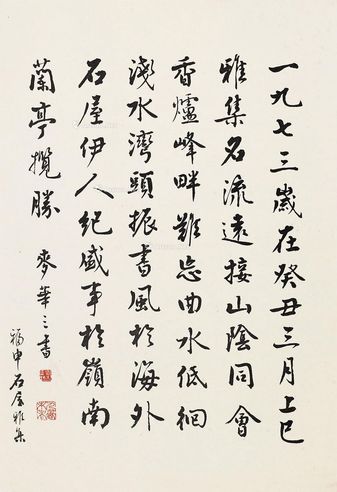 一九七三歲在癸丑三月上巳
雅集名流遠接山陰同會
香爐峰畔難忘曲水低徊
淺水灣頭振書風於海外
石屋伊人紀盛事於嶺南
蘭亭攬勝 麥華三書
福申石屋雅集